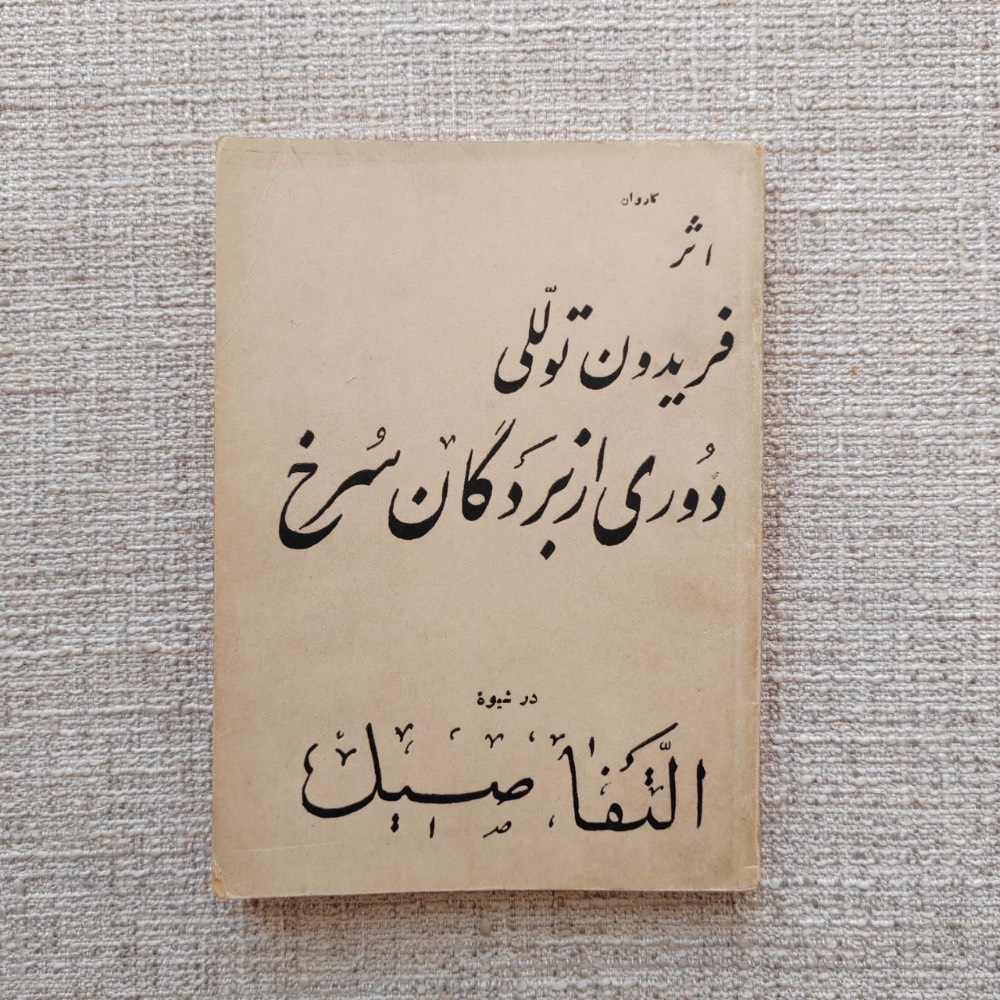 کاروان
اثر
فریدون توللّی
دُوری از بَردگان سُرخ
در شیوۀ
التَّفاصیل